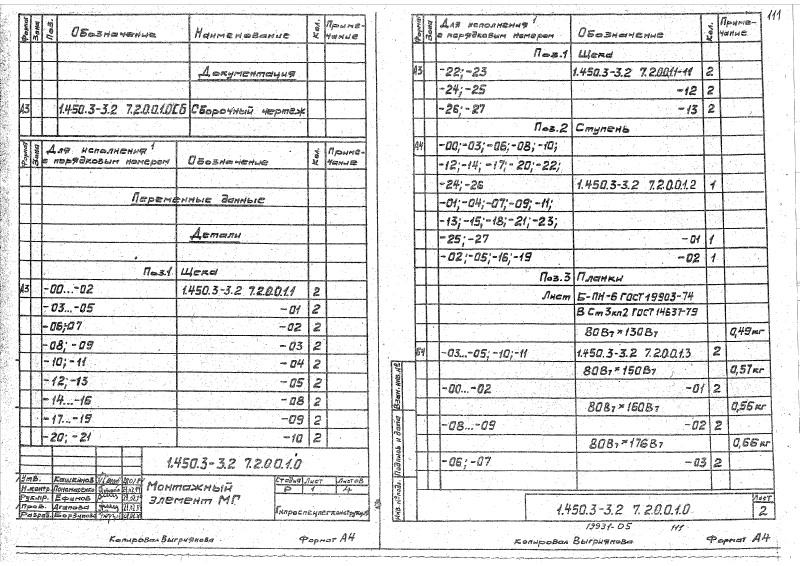 Формат Зона Поз. Обозначение Наименование Кол. Примечание
Документация
А3 1.450.3-3.2 7.2.0.0.1.0СБ Сборочный чертеж
Формат Зона Для исполнения¹ с порядковым номером Обозначение Кол. Примечание
Переменные данные
Детали
Поз.1 Щека
А3 -00...-02 1.450.3-3.2 7.2.0.0.1.1 2
-03...-05 -01 2
-06;-07 -02 2
-08; -09 -03 2
-10; -11 -04 2
-12; -13 -05 2
-14...-16 -08 2
-17...-19 -09 2
-20; -21 -10 2
1.450.3-3.2 7.2.0.0.1.0
Утв. Кашкинов
Н.контр. Пономаренко
Рук.пр. Ефимов
Пров. Агапова
Разраб.
Монтажный элемент МГ
Стадия Лист Листов
Р 1 4
Гипроспецлегконструкция
Копировал Выгриянова Формат А4
111
Формат Зона Для исполнения¹ с порядковым номером Обозначение Кол. Примечание
Поз.1 Щека
А3 -22; -23 1.450.3-3.2 7.2.0.0.1.1-11 2
-24; -25 -12 2
-26; -27 -13 2
Поз.2 Ступень
А4 -00;-03;-06;-08;-10;
-12;-14; -17; -20;-22;
-24; -26 1.450.3-3.2 7.2.0.0.1.2 1
-01;-04;-07;-09;-11;
-13;-15;-18;-21;-23;
-25; -27 -01 1
-02;-05;-16;-19 -02 1
Поз.3 Планки
Лист Б-ПН-6 ГОСТ 19903-74
В Ст3кп2 ГОСТ 14637-79
80Вт*130Вт 0,49кг
Б4 -03...-05; -10; -11 1.450.3-3.2 7.2.0.0.1.3 2
80Вт*150Вт 0,57кг
-00...-02 -01 2
80Вт*160Вт 0,56кг
-08...-09 -02 2
80Вт*176Вт 0,66кг
-06; -07 -03 2
Инв.№подл. Подпись и дата Взам.инв.№
1.450.3-3.2 7.2.0.0.1.0
Лист
2
19931-05 111
Копировал Выгриянова Формат А4